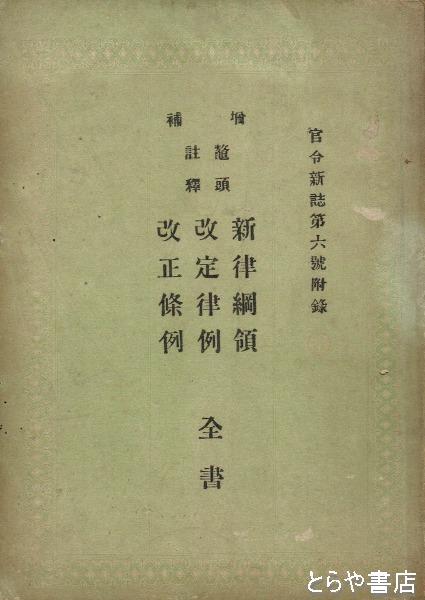 官令新誌第六號附錄
增補
鼇頭
註釋
新律綱領
改定律例
改正條例
全書
とらや書店